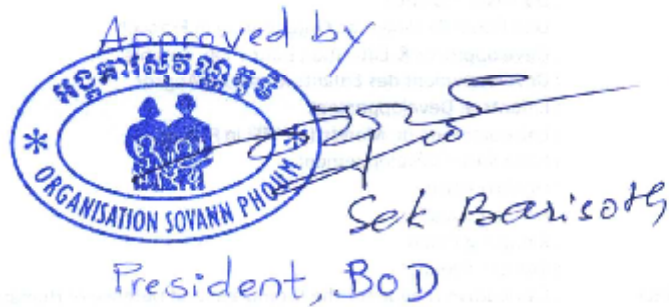 Approved by
អង្គការសុវណ្ណភូមិ
* ORGANISATION SOVANN PHOUM *
Sek Barisoth
President, BoD